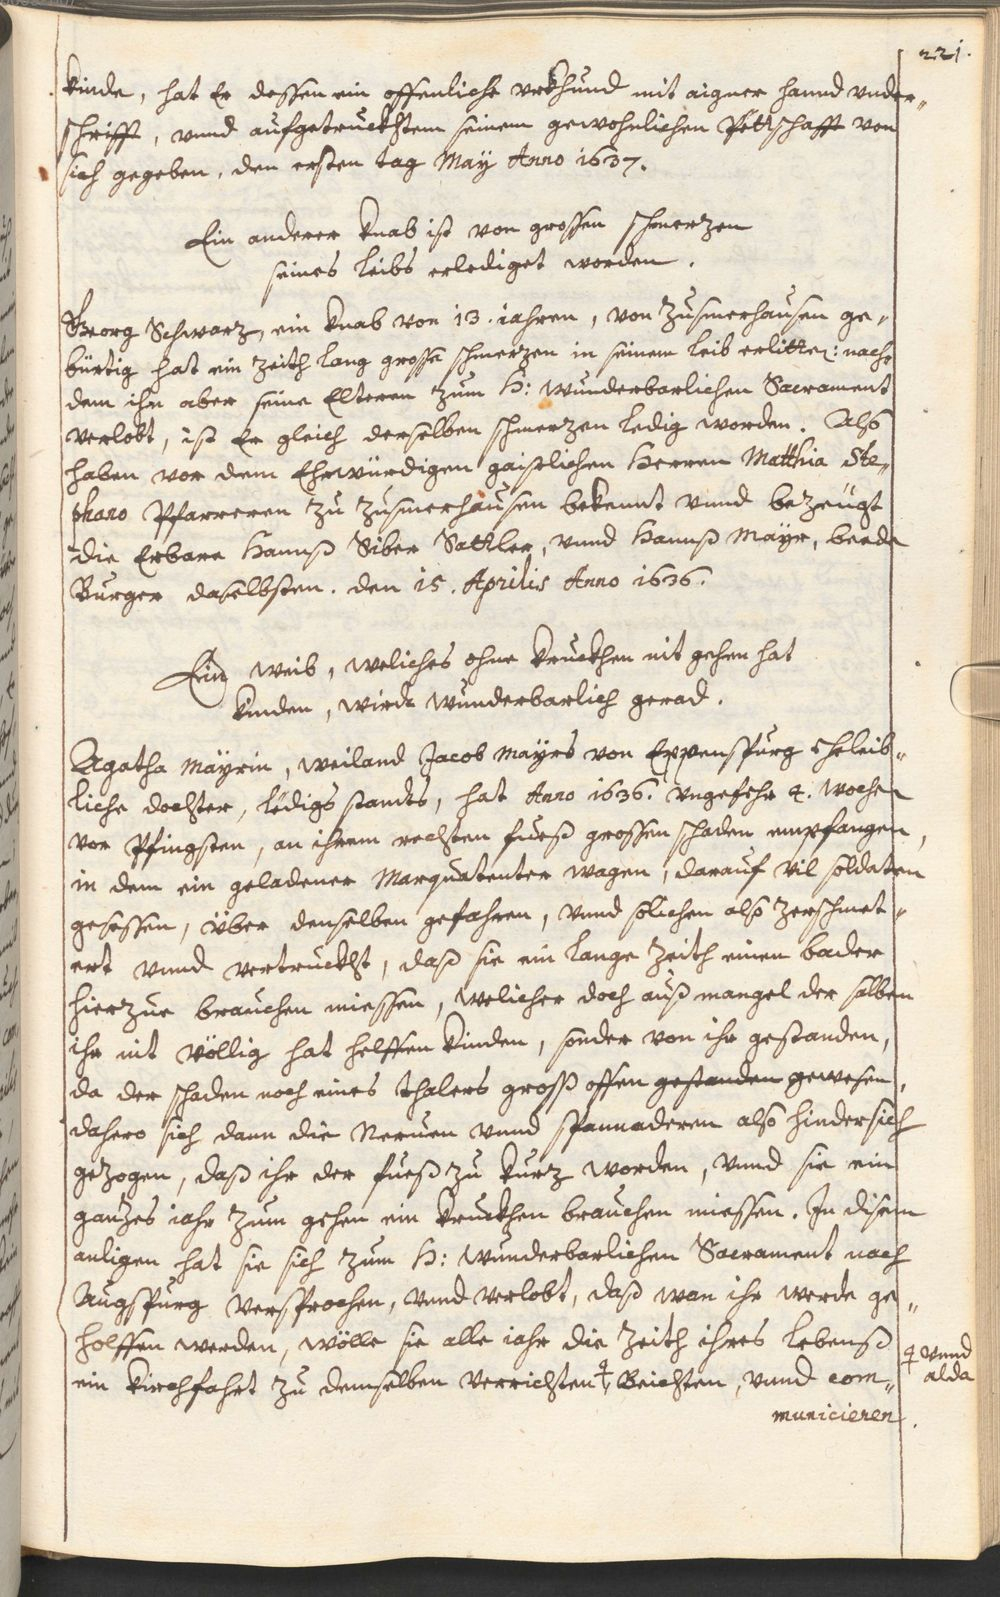 221.
kinde, hat Er dessen ein offenliche vrkhund mit aigner hannd vnder„
schrifft, vnnd aufgetruckhtem seinem gewohnlichen Pëttschafft von
sich gegeben, den ersten tag Maÿ Anno 1637.
Ein anderer knab ist von grossen schmerzen
seines leibs erlediget worden.
Georg Schwarz, ein knab von 13. iahren, von Zusmerhausen ge„
bürtig hat ein Zeith lang grosse schmerzen in seinem leib erlitten: nach„
dem ihn aber seine Elteren zum H: Wunderbarlichen Sacrament
verlobt, ist Er gleich derselben schmerzen ledig worden. Also
haben vor dem Ehrwürdigen gaistlichen Herren Matthia Ste„
phano Pfarreren zu Zusmerhausen bekennt vnnd bezeugt
die Erbare Hannß Siber Sattler, vnnd Hannß Mayr, beede
Burger daselbsten. den 15. Aprilis Anno 1636.
Ein weib, weliches ohne kruckhen nit gehen hat
kinden, wirdt wunderbarlich gerad.
Agatha Mäyrin, weiland Jacob Mayrs von Eppenspurg eheleib„
liche dochter, lëdigs standts, hat Anno 1636. vngefehr 4. wochen
vor Pfingsten, an ihrem rechten fueß grossen schaden empfangen,
in dem ein geladener Marquatenter wagen, darauf vil soldaten
gesessen, über denselben gefahren, vnnd solichen also zerschmet„
ert vnnd vertruckht, daß sie ein lange Zeith einen bader
hierzue brauchen miessen, welicher doch auß mangel der salben
ihr nit völlig hat helffen kinden, sonder von ihr gestanden,
da der schaden noch eines thalers groß offen gestanden gewesen,
dahero sich dann die Neruen vnnd spannaderen also hindersich
gezogen, daß ihr der fueß zu kurz worden, vnnd sie ein
ganzes iahr zum gehen ein kruckhen brauchen miessen. In disem
anligen hat sie sich zum H: Wunderbarlichen Sacrament nach
Augspurg versprochen, vnnd verlobt, daß wan ihr werde ge„
holffen werden, wölle sie alle iahr die Zeith ihres lebenß
ein kirchfahrt zu demselben verrichten, Beichten, vnnd com„
vnnd
alda
municieren.